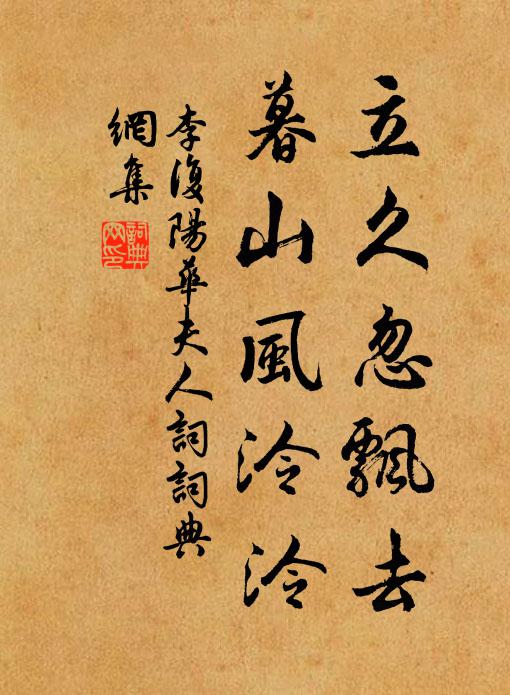 立久忽飄去
暮山風泠泠
李復陽華夫人詞詞典
網集
詞典
网印